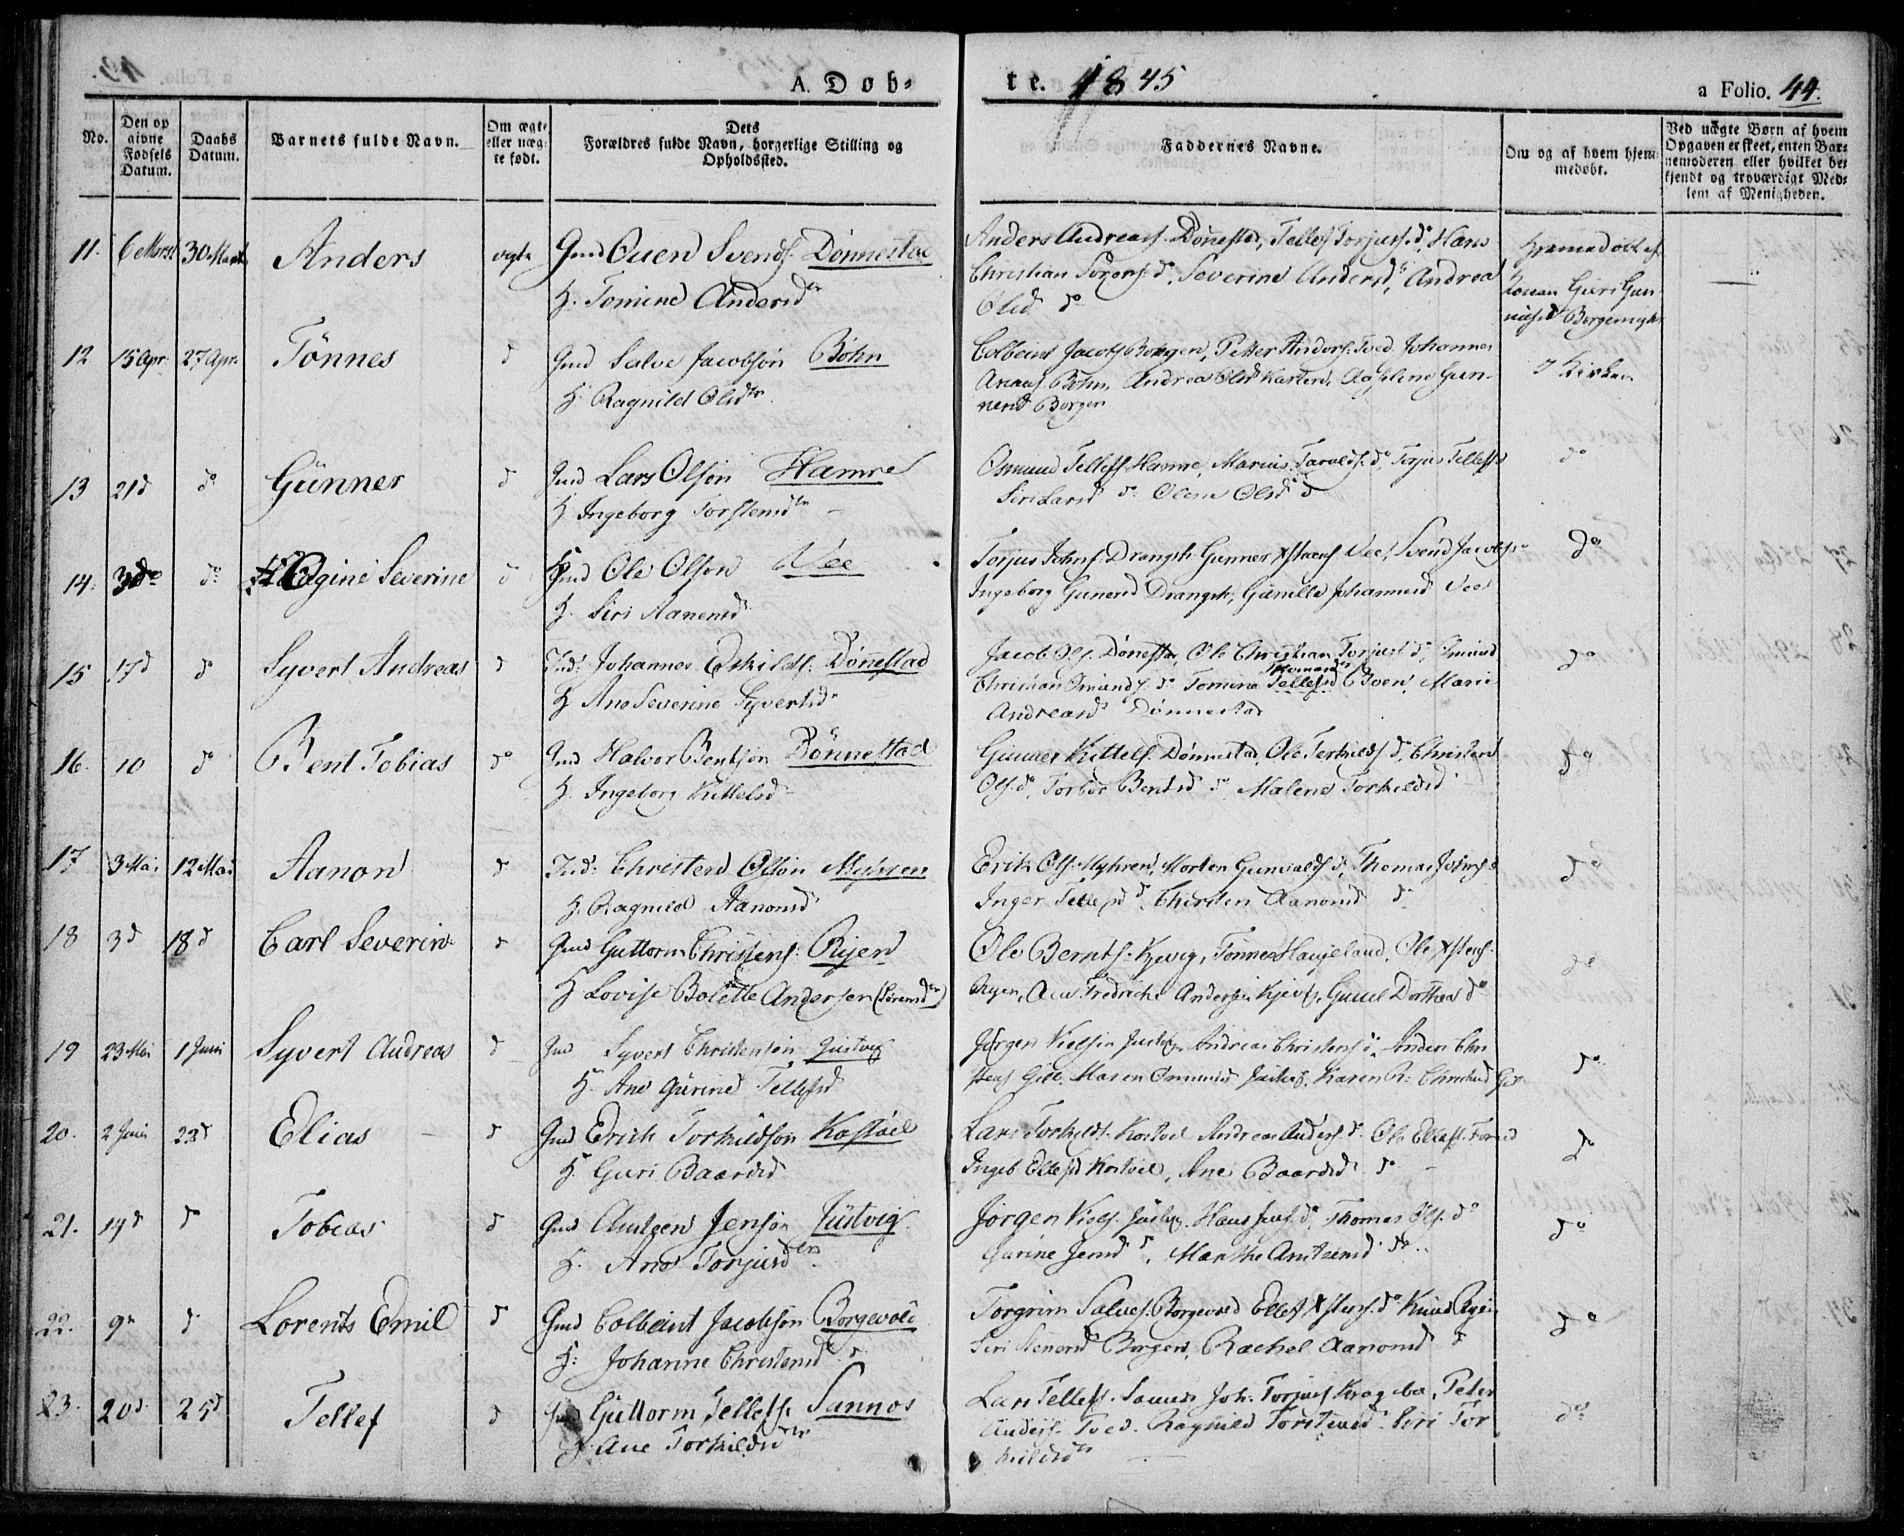 A. Døb-
te. 1845
a Folio. 44.
No.
Den op
givne
Fødsels
Datum.
Daabs
Datum.
Barnets fulde Navn.
Om ægte
eller uæg-
te født.
Dets
Forældres fulde Navn, borgerlige Stilling og
Opholdssted.
Faddernes Navne.
Om og af hvem hjem-
medøbt.
Ved uægte Børn af hvem
Opgaven er skeet, enten Bar-
nemoderen eller hvilket be-
kjendt og troværdigt Med-
lem af Menigheden.
11. 6 Marst 30 Marts Anders ægte Gmd Ouen Svends. Dønnestad
H. Tomine Andersd
Anders Andreass. Dønnestad, Tellef Torjuss. do, Hans
Christian Sørens. do, Severine Andersd, Andrea
Olsd do
Hjemmedøbt af
Konen Guri Gun-
12 15 Apr. 27 Apr. Tønnes d Gmd Salve Jacobsøn Bøhn
H. Ragnild Olsdtr.
Colbeint Jacobs Borgen, Petter Anders. Tved, Johannes
Bøhn, Andrea Olsd
nersd Borgen
I Kirken
13 21 d do Gunner d Gmd Lars Olsøn Hamre
H. Ingeborg Torstensdtr
Osmund Tellefs. Hamre, Marius Taralds. do, Torjus Tellefs
Siri Larsd do Olene Olsd d
do
14. 3 do do Hagine Severine d Gmd Ole Olsøn Vee
H. Siri Aanensd
Torjus Johns. Drangsh. Gunner Xstens Vee, Svend Jacobs
Ingeborg Gunersd Drangsh., Gunille Johannesd Vee
do
15 17 d d Syvert Andreas d Ind. Johannes Eskilds. Dønnestad
H. Ane Severine Syvertsd
Jacob Ols. Dønnestad, Ole Christian Torjus d,
Christian Omunds. do Tomine Tellefsd Boen, Marie
Andreasd Dønnestad
do
16. 10 do Bent Tobias do Gmd Halvor Bentsøn Dønnestad
H. Ingeborg Kittelsd
Gunner Kittels. Dønnestad, Ole Terkilds do, Christen
Ols. do, Torbor Bentsd do, Malene Torkildsd
do
17 3 Mai 12 Mai Aanon d Ind. Christen Olsøn Myhren
H. Ragnild Aanonsd
Erik Ols. Myhren, Morten Gunvalds d, Thomas Johns. d
Inger Tellefsd d, Thorsten Aanonsd do
do
18 3 d 18 d Carl Severin d Gmd Guttorm Christens. Ryen
H Lovise Bolette Andersen (Sørensdtr)
Ole Bernts. Kjevig, Tønnes Haugeland, Ole Xstens.
Ryen, Ane Fredrike Andersen Kjevig, Gunil Dorthea do
do
19 23 Mai 1 Juni Syvert Andreas d Gmd Syvert Christensøn Justvig
H. Ane Gurine Tellefsd
Jørgen Kielsen Justvig, Andreas Christens d. Anders Chri
stens Gill, Maren Omundsd Justvig, Karen Christensd Gill
do
20. 2 Juni 22 d Elias d Gmd Erich Torkildsøn Kostøel
H. Guri Baardsd
Lars Torkilds. Kostøel Andreas Anders. d. Ole Ellefs.
Ingeb Ellefsd Kostøel, Ane Baardsd do
do
21. 14 d d Tobias d Gmd Arntzen Jensøn Justvig
H. Ane Torjusd
Jørgen Kiels. Justvig. Hans Jens. do, Thomas Ols. do
Gurine Jensd d, Marthe Arntzensd do
do
22. 9 d Lorents Emil d Gmd Colbeint Jacobsøn Borgevold
H: Johanne Christensd
Torgrim Salves. Borgevold Ellef Xstens. do Knud Ryen
Siri Stenersd Borgen, Rachel Aanonsd d
do
23. 20 d 25 d Tellef d Gmd Guttorm Tellefs. Sannos
H. Ane Torkildsdtr
Lars Tellefs. Sannos Joh. Torjus Kragebo, Peter
Anders. Tved. Ragnild Torstensd. Siri Tor
kildsdtr
do